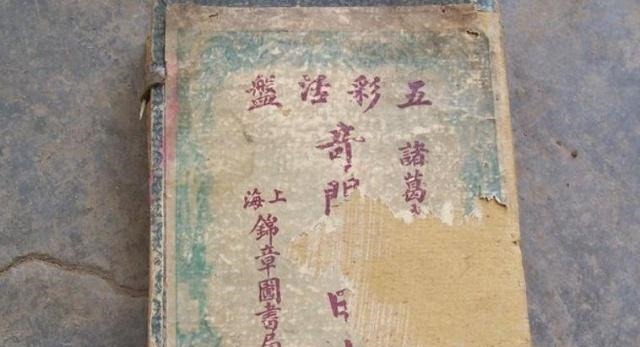 五彩活盤
諸葛
奇門
上海
錦章圖書局